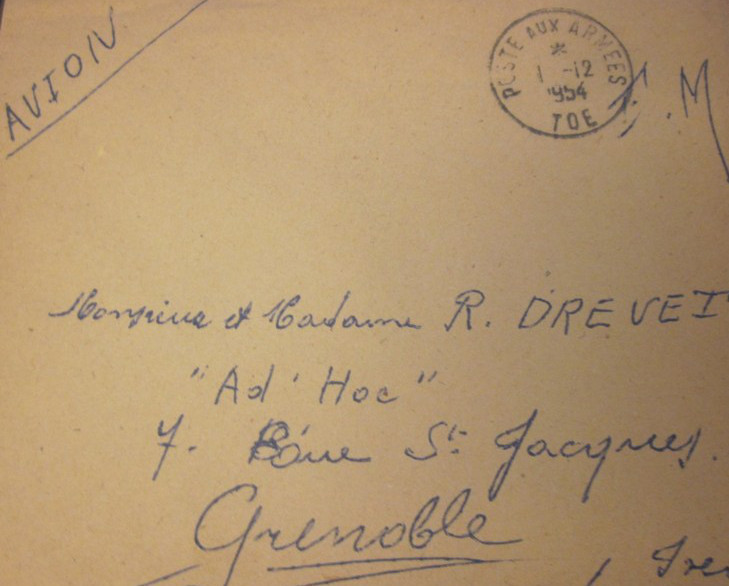 AVION
POSTE AUX ARMEES
*
1 -12
1954
TOE
F.M
Monsieur et Madame R. DREVET
"Ad' Hoc"
7. Rue St Jacques.
Grenoble